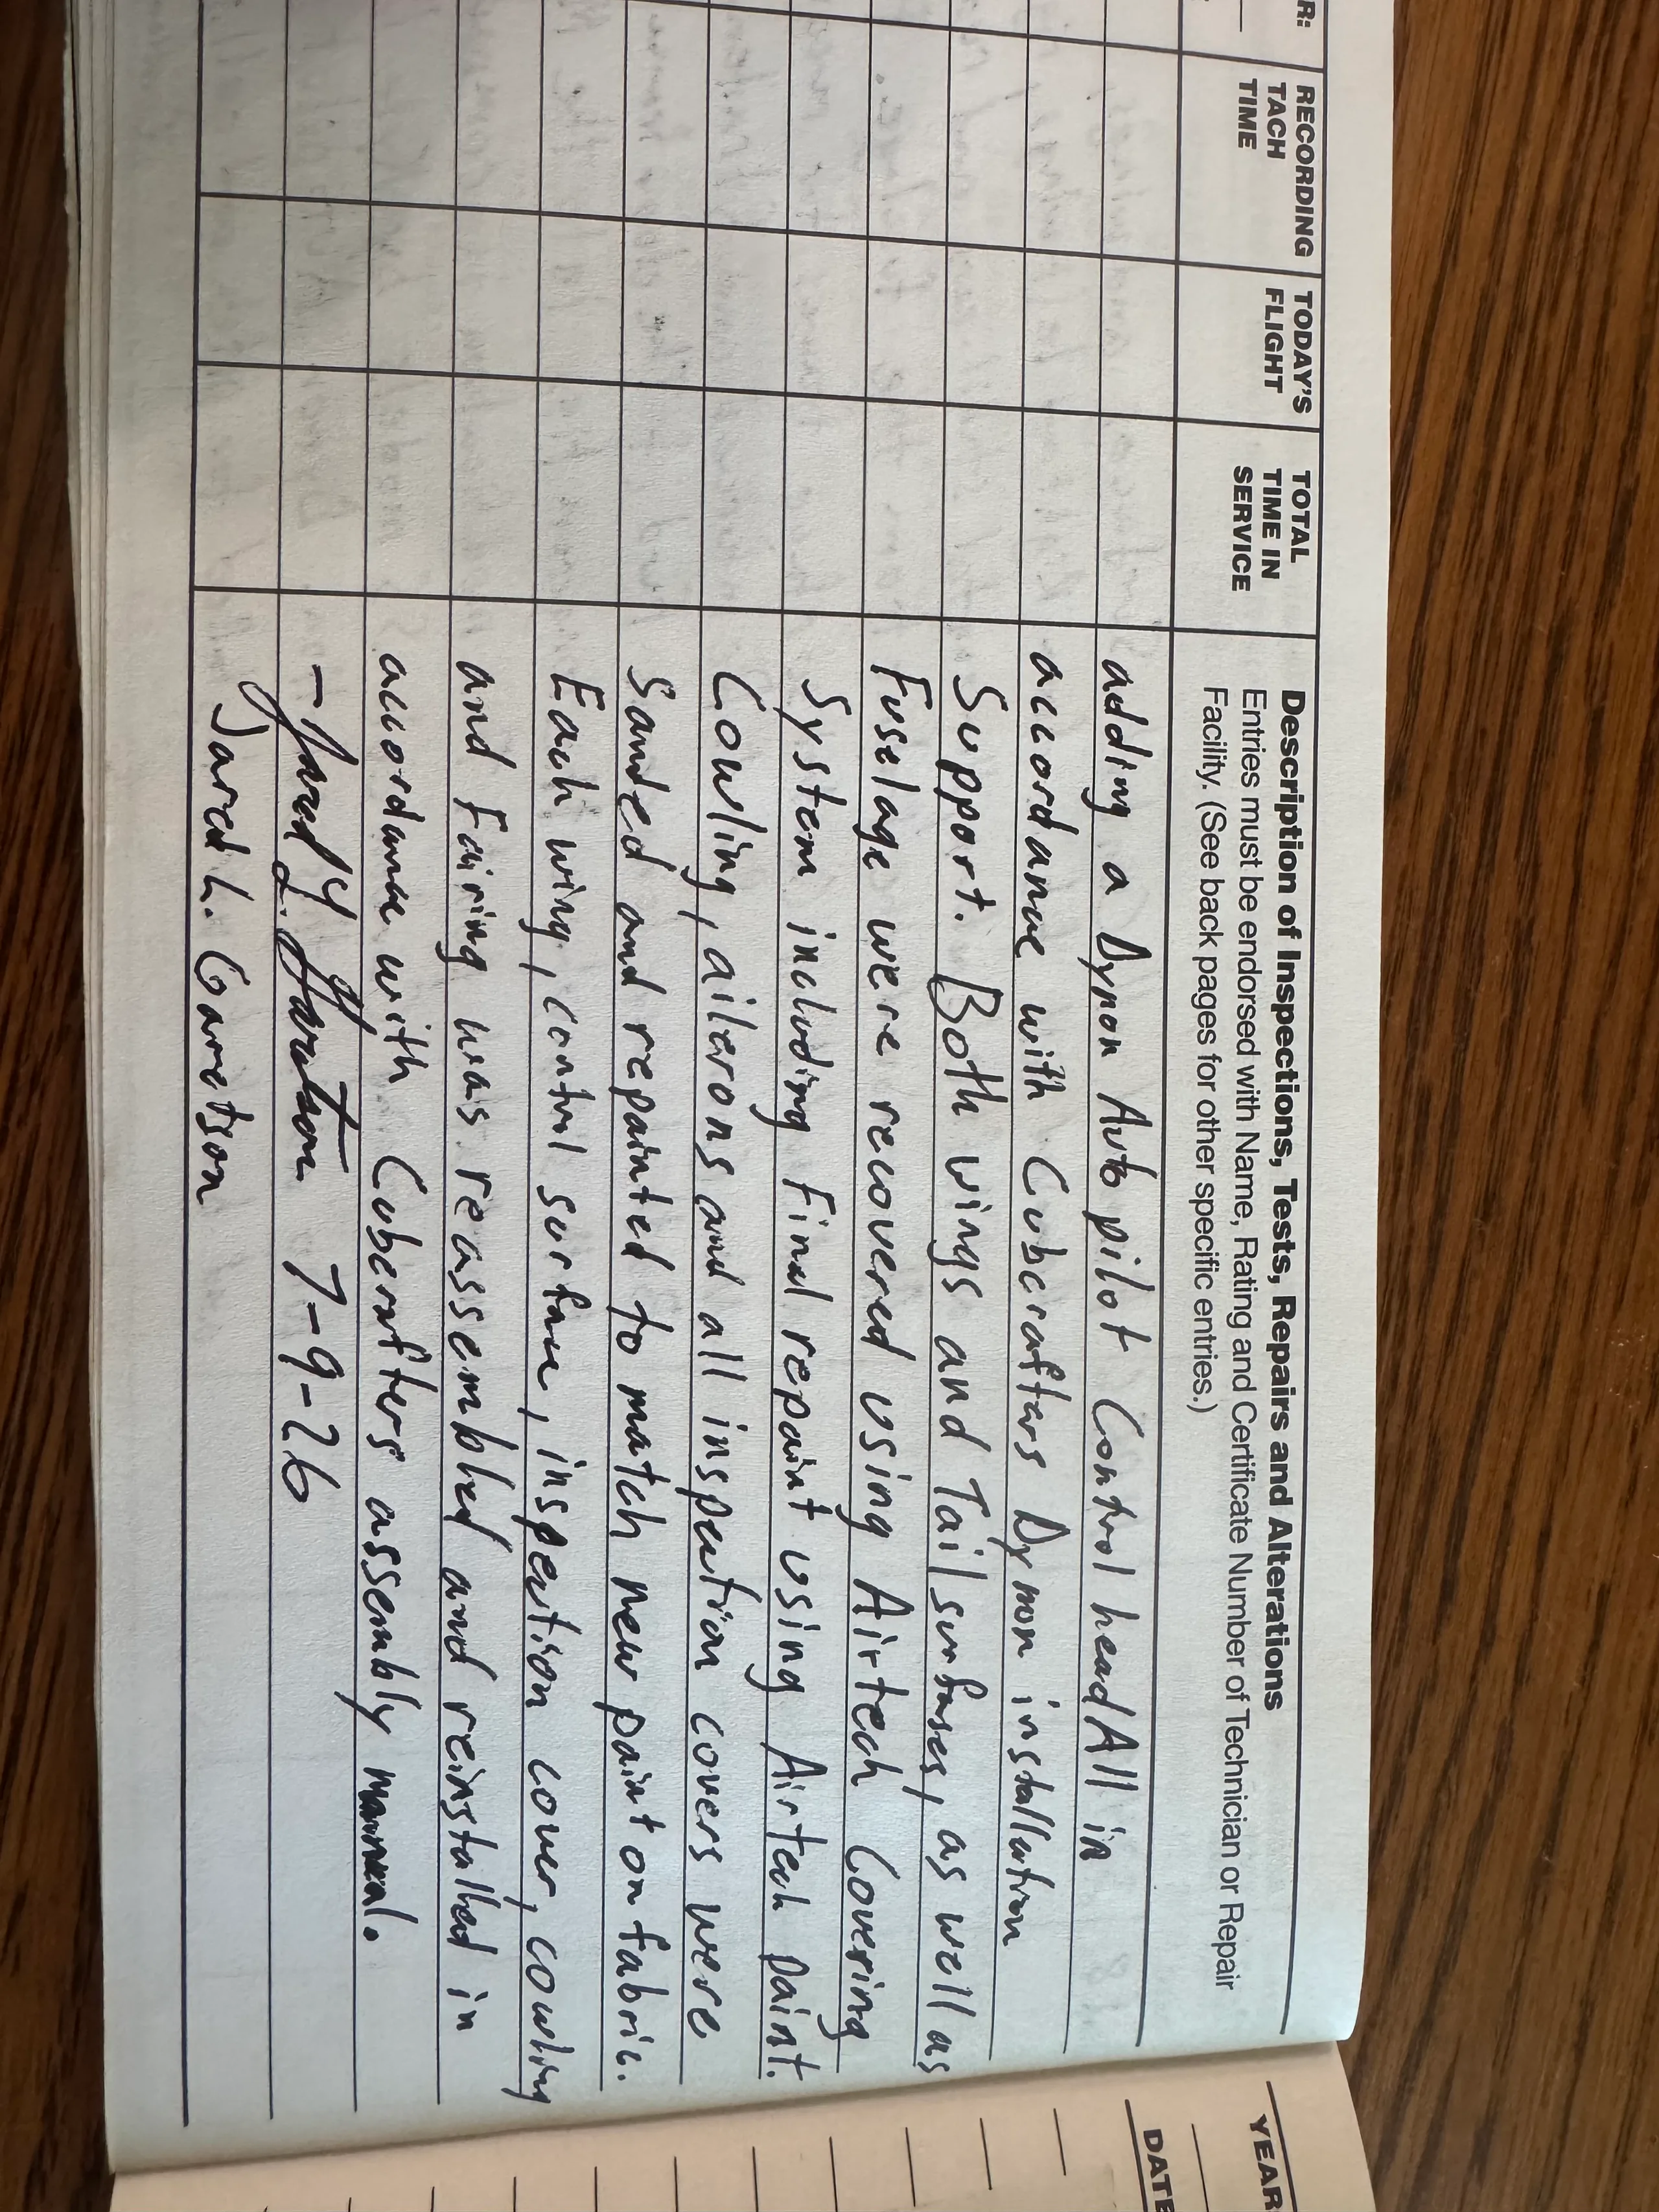 R:
RECORDING TACH TIME
TODAY'S FLIGHT
TOTAL TIME IN SERVICE
Description of Inspections, Tests, Repairs and Alterations
Entries must be endorsed with Name, Rating and Certificate Number of Technician or Repair
Facility. (See back pages for other specific entries.)
adding a Dynon Auto pilot Control head All in
accordance with Cubcrafters Dynon installation
Support. Both wings and Tail surfases, as well as
Fuselage were recovered using Airtech Covering
System including Final repaint using Airtech paint.
Cowling, ailerons and all inspection covers were
Sanded and repainted to match new paint on fabric.
Each wing, control surface, inspection cover, cowling
and Fairing was reassembled and reinstalled in
accordance with Cubcrafters assembly manual.
- Jared L. Garetson 7-9-26
Jared L. Garetson
YEAR
DATE